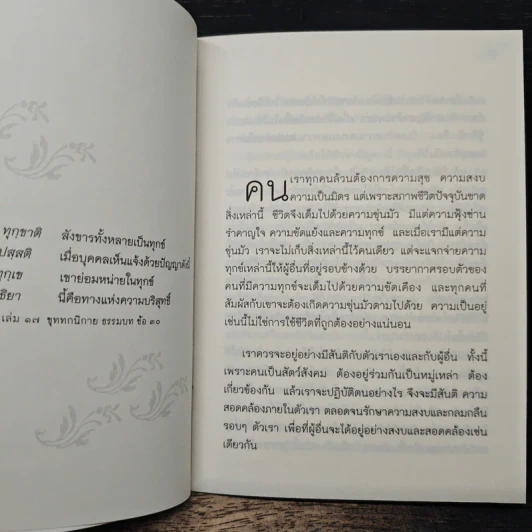 ทุกฺขาติ สังขารทั้งหลายเป็นทุกข์
ปสฺสติ เมื่อบุคคลเห็นแจ้งด้วยปัญญาดังนี้
ทุกฺเข เขาย่อมหน่ายในทุกข์
ธิยา นี้คือทางแห่งความบริสุทธิ์
เล่ม ๑๗ ขุททกนิกาย ธรรมบท ข้อ ๓๐
คนเราทุกคนล้วนต้องการความสุข ความสงบ
ความเป็นมิตร แต่เพราะสภาพชีวิตปัจจุบันขาด
สิ่งเหล่านี้ ชีวิตจึงเต็มไปด้วยความขุ่นมัว มีแต่ความฟุ้งซ่าน
รำคาญใจ ความขัดแย้งและความทุกข์ และเมื่อเรามีความขุ่น
มัว เราจะไม่เก็บสิ่งเหล่านี้ไว้คนเดียว แต่จะแจกจ่ายความ
ทุกข์เหล่านี้ให้ผู้อื่นที่อยู่รอบข้างด้วย บรรยากาศรอบตัวของ
คนที่มีความทุกข์จะเต็มไปด้วยความขัดเคือง และทุกคนที่
สัมผัสกับเขาจะต้องเกิดความขุ่นมัวตามไปด้วย ความเป็นอยู่
เช่นนี้ไม่ใช่การใช้ชีวิตที่ถูกต้องอย่างแน่นอน
เราควรจะอยู่อย่างมีสันติกับตัวเราเองและกับผู้อื่น ทั้งนี้
เพราะคนเป็นสัตว์สังคม ต้องอยู่ร่วมกันเป็นหมู่เหล่า ต้อง
เกี่ยวข้องกัน แล้วเราจะปฏิบัติตนอย่างไร จึงจะมีสันติ ความ
สอดคล้องภายในตัวเรา ตลอดจนรักษาความสงบและกลมกลืน
รอบๆ ตัวเรา เพื่อที่ผู้อื่นจะได้อยู่อย่างสงบและสอดคล้องเช่น
เดียวกัน